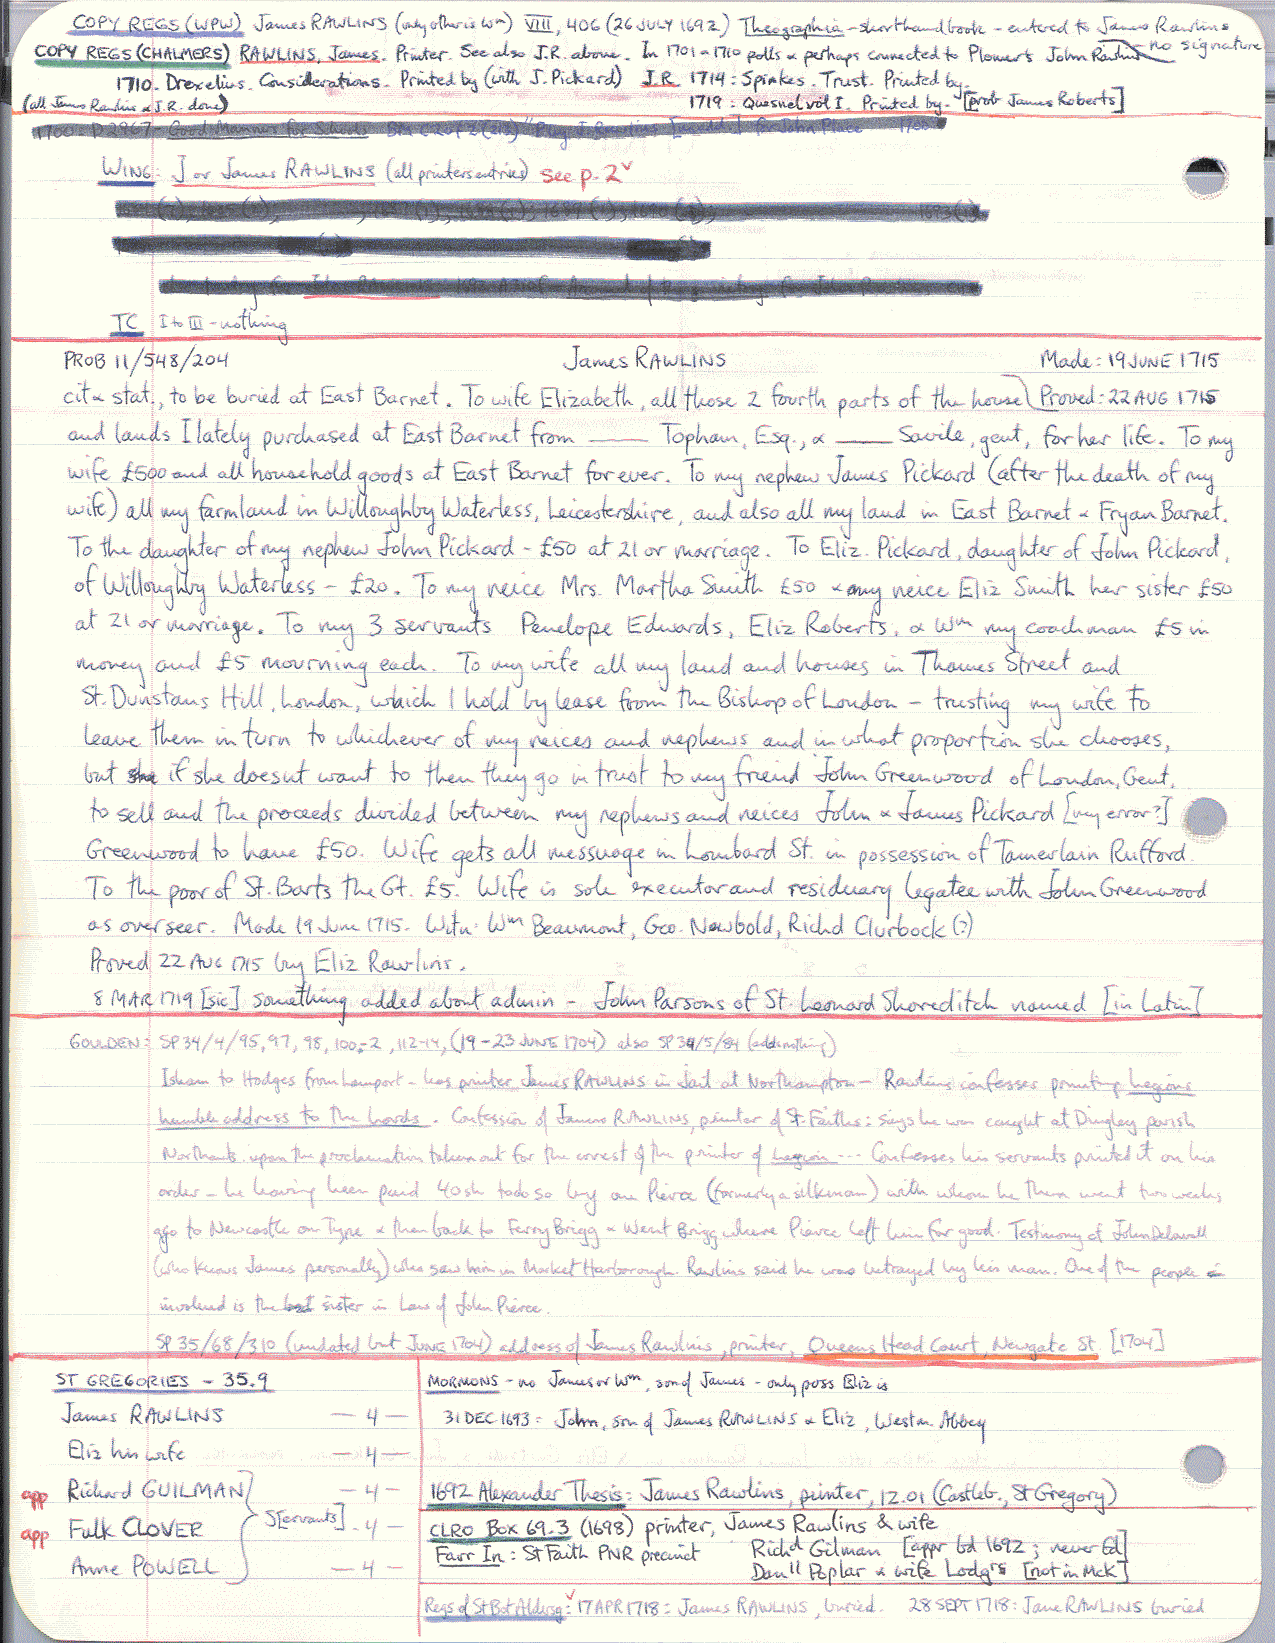 COPY REGS (WPW) James RAWLINS (only other is Wm) VIII, 406 (26 JULY 1692) Theographia - shorthand book - entered to James Rawlins
no signature
COPY REGS (CHALMERS) RAWLINS, James. Printer. See also J.R. above. In 1701-1710 polls & perhaps connected to Plomer's John Rawlins
1710. Drexelius. Considerations. Printed by (with J. Pickard) J.R. 1714: Spinkes. Trust. Printed by.
(all James Rawlins & J.R. done) 1719: Quesnel vol I. Printed by. [prob James Roberts]
WING: J or James RAWLINS (all printers entries) see p. 2
TC I to III - nothing
PROB 11/548/204 James RAWLINS Made: 19 JUNE 1715
cit & stat., to be buried at East Barnet. To wife Elizabeth, all those 2 fourth parts of the house Proved: 22 AUG 1715
and lands I lately purchased at East Barnet from —— Topham, Esq., & —— Savile, gent, for her life. To my
wife £500 and all household goods at East Barnet for ever. To my nephew James Pickard (after the death of my
wife) all my farmland in Willoughby Waterless, Leicestershire, and also all my land in East Barnet & Fryan Barnet.
To the daughter of my nephew John Pickard - £50 at 21 or marriage. To Eliz. Pickard, daughter of John Pickard,
of Willoughby Waterless - £20. To my neice Mrs. Martha Smith £50 & my neice Eliz Smith her sister £50
at 21 or marriage. To my 3 servants Penelope Edwards, Eliz Roberts, & Wm my coachman £5 in
money and £5 mourning each. To my wife all my land and houses in Thames Street and
St. Dunstans Hill, London, which I hold by lease from the Bishop of London - trusting my wife to
leave them in turn to whichever of my neices and nephews and in what proportion she chooses,
but if she doesnt want to then they go in trust to my friend John Greenwood of London, Gent,
to sell and the proceeds divided between my nephews and neices John & James Pickard [my error?]
Greenwood to have £50. Wife gets all messuage in Lombard St. in possession of Tamerlain Rufford.
To the poor of St. Barts the Gt. £5. Wife is sole executor and residuary legatee with John Greenwood
as overseer. Made 19 June 1715. Witn: Wm Beaumont, Geo. Newbold, Richd Clurbock (?)
Proved 22 AUG 1715 by Eliz Rawlins.
8 MAR 1719 [sic] something added about admin - John Parsons of St. Leonard Shoreditch named [in Latin]
GOULDEN: SP34/4/95, 97, 98, 100-2, 112-14, (19-23 JUNE 1704) also SP34/5/84 (adds nothing)
Isham to Hodges from Lamport - has printer James RAWLINS in Jail at Northampton - Rawlins confesses printing Legions
humble address to the Lords. Confession of James RAWLINS, printer of St. Faiths: says he was caught at Dingley parish
Northants. upon the proclamation taken out for the arrest of the printer of Legion --- Confesses his servants printed it on his
order - he having been paid 40sh to do so by one Pierce (formerly a silkman) with whom he then went two weeks
ago to Newcastle on Tyne & then back to Ferry Brigg & Went Brigg where Pierce left him for good. Testimony of John Delavall
(who knows James personally) who saw him in Market Harborough. Rawlins said he was betrayed by his man. One of the people
involved is the sister in law of John Pierce.
SP 35/68/310 (undated but JUNE 1704) address of James Rawlins, printer, Queens Head Court, Newgate St. [1704]
ST GREGORIES - 35.9
James RAWLINS — 4 —
Eliz his wife — 4 —
app Richard GUILMAN — 4 —
app Fulk CLOVER S[ervants]. 4 —
Anne POWELL — 4 —
MORMONS - no James or Wm, son of James - only poss Eliz is
31 DEC 1693: John, son of James RAWLINS & Eliz, Westm. Abbey
1692 Alexander Thesis: James Rawlins, printer, 12.01 (Castleb., St Gregory)
CLRO Box 69.3 (1698) printer, James Rawlins & wife
Farr In: St Faith PNR precinct Richd Gilman [appr bd 1692; never fd]
Danll Poplar & wife Lodgrs [not in McK]
Regs of St Bot Aldersg: 17 APR 1718: James RAWLINS, buried. 28 SEPT 1718: Jane RAWLINS buried